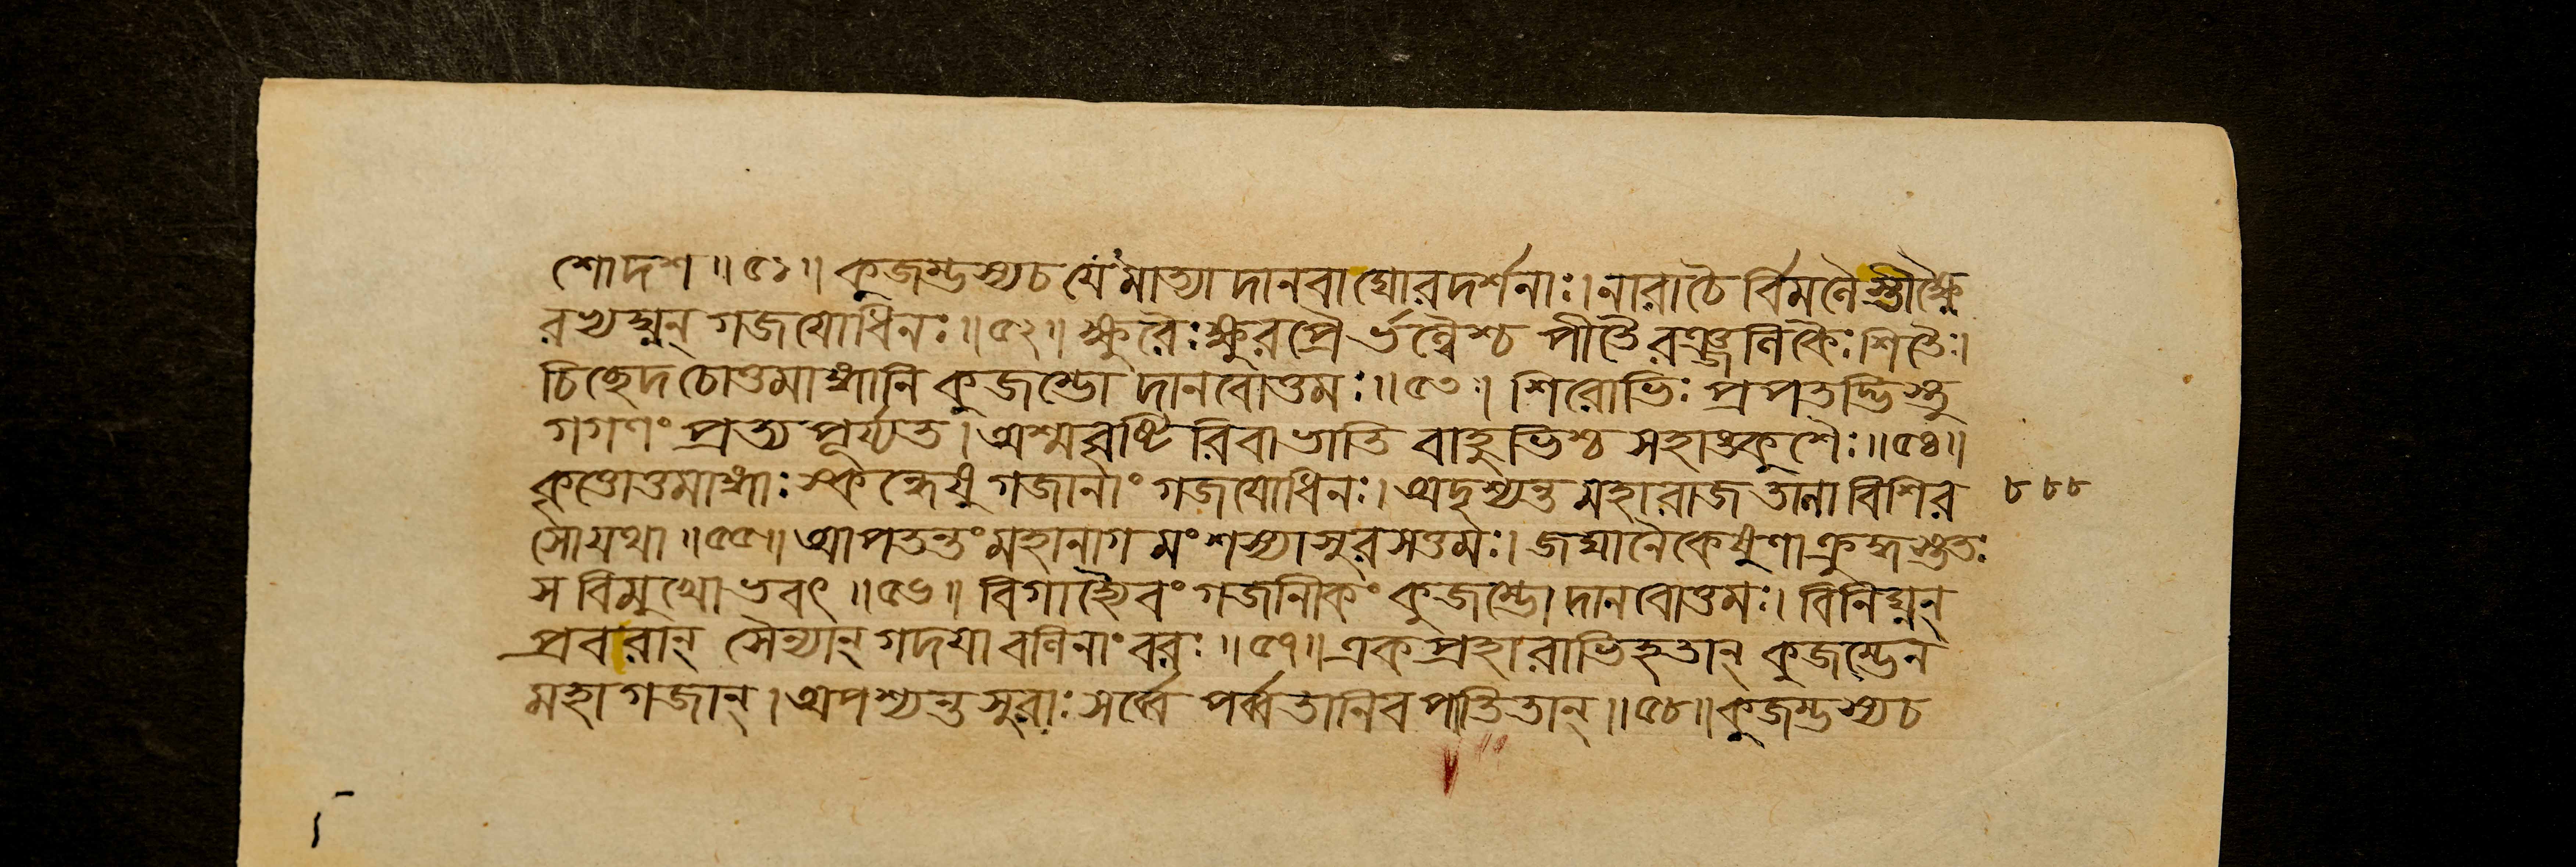 শোদশ ॥ ৫১ ॥ কুজম্ভস্যচ যেঽমাত্যা দানবা ঘোরদর্শনাঃ। নারাচৈ র্বিমলৈ স্তীক্ষ্ণৈ
রভ্যঘ্নন্ গজযোধিনঃ ॥ ৫২ ॥ ক্ষুরৈঃ ক্ষুরপ্রৈ র্ভল্লৈশ্চ পীতৈরঞ্জলিকৈঃ শিতৈঃ।
চিচ্ছেদ চোত্তমাঙ্গানি কুজম্ভো দানবোত্তমঃ ॥ ৫৩ ॥ শিরোভিঃ প্রপতদ্ভিস্তু
গগণং প্রত্যপূর্য্যত। অশ্মবৃষ্টি রিবাভাতি বাহুভিশ্চ সহাঙ্কুশৈঃ ॥ ৫৪ ॥
কৃত্তোত্তমাঙ্গাঃ স্কন্ধেষু গজানাং গজযোধিনঃ। অদৃশ্যন্ত মহারাজ তালা বিশির ৮৮৮
সো যথা ॥ ৫৫ ॥ আপতন্তং মহানাগ মংশস্যাসুরসত্তমঃ। জঘানৈকেষুণা ক্রুদ্ধ স্ততঃ
স বিমুখোভবৎ ॥ ৫৬ ॥ বিগাহ্যৈবং গজানীকং কুজম্ভো দানবোত্তমঃ। বিনিঘ্নন্
প্রবরান্ সৈন্যান্ গদয়া বলিনাং বরঃ ॥ ৫৭ ॥ একপ্রহারাভিহতান্ কুজম্ভেন
মহাগজান্। অপশ্যন্ত সুরাঃ সর্ব্বে পর্ব্বতানিব পাতিতান্ ॥ ৫৮ ॥ কুজম্ভস্যচ